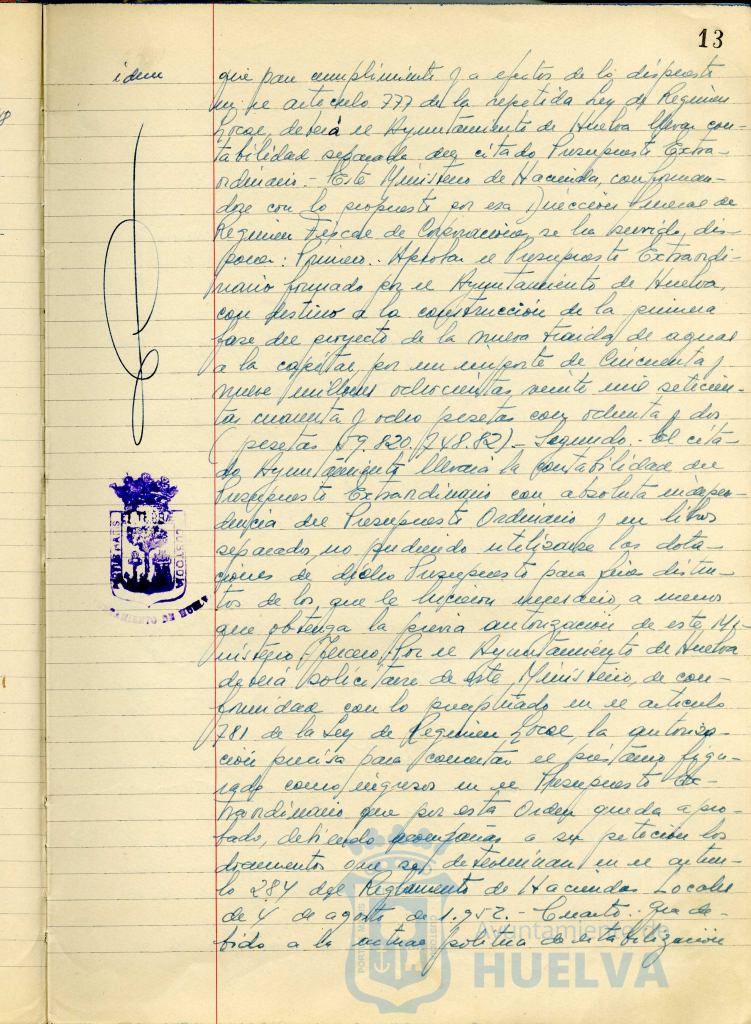 13
idem
que para cumplimiento y a efectos de lo dispuesto
en el artículo 777 de la repetida Ley de Regimen
Local, deberá el Ayuntamiento de Huelva llevar con-
tabilidad separada del citado Presupuesto Extra-
ordinario.- Este Ministerio de Hacienda, conforman-
dose con lo propuesto por esa Dirección General de
Regimen Fiscal de Corporaciones, se ha servido, dis-
poner: Primero.- Aprobar el Presupuesto Extraordi-
nario formado por el Ayuntamiento de Huelva,
con destino a la construcción de la primera
fase del proyecto de la nueva traida de aguas
a la capital, por un importe de Cincuenta y
nueve millones ochocientas veinte mil setecien-
tas cuarenta y ocho pesetas con ochenta y dos
(pesetas 59.820.748.82).- Segundo.- El cita-
do Ayuntamiento llevará la contabilidad del
Presupuesto Extraordinario con absoluta indepen-
dencia del Presupuesto Ordinario y en libros
separados, no pudiendo utilizarse las dota-
ciones de dicho Presupuesto para fines distin-
tos de los que le hicieron necesario a menos
que obtenga la previa autorización de este Mi-
nisterio.- Tercero: Por el Ayuntamiento de Huelva
deberá solicitarse de este Ministerio, de con-
formidad con lo preceptuado en el artículo
781 de la Ley de Regimen Local, la autoriza-
ción precisa para concertar el préstamo figu-
rado como ingresos en el Presupuesto Ex-
traordinario que por esta Orden queda apro-
bado, debiendo acompañar a su petición los
documentos que se determinan en el artícu-
lo 284 del Reglamento de Haciendas Locales
de 4 de agosto de 1.952.- Cuarto.- Que de-
bido a la actual politica de estabilización
PORTUS MARIS
ET TERRE
CUSTODIA
AYUNTAMIENTO DE HUELVA
Ayuntamiento de
HUELVA